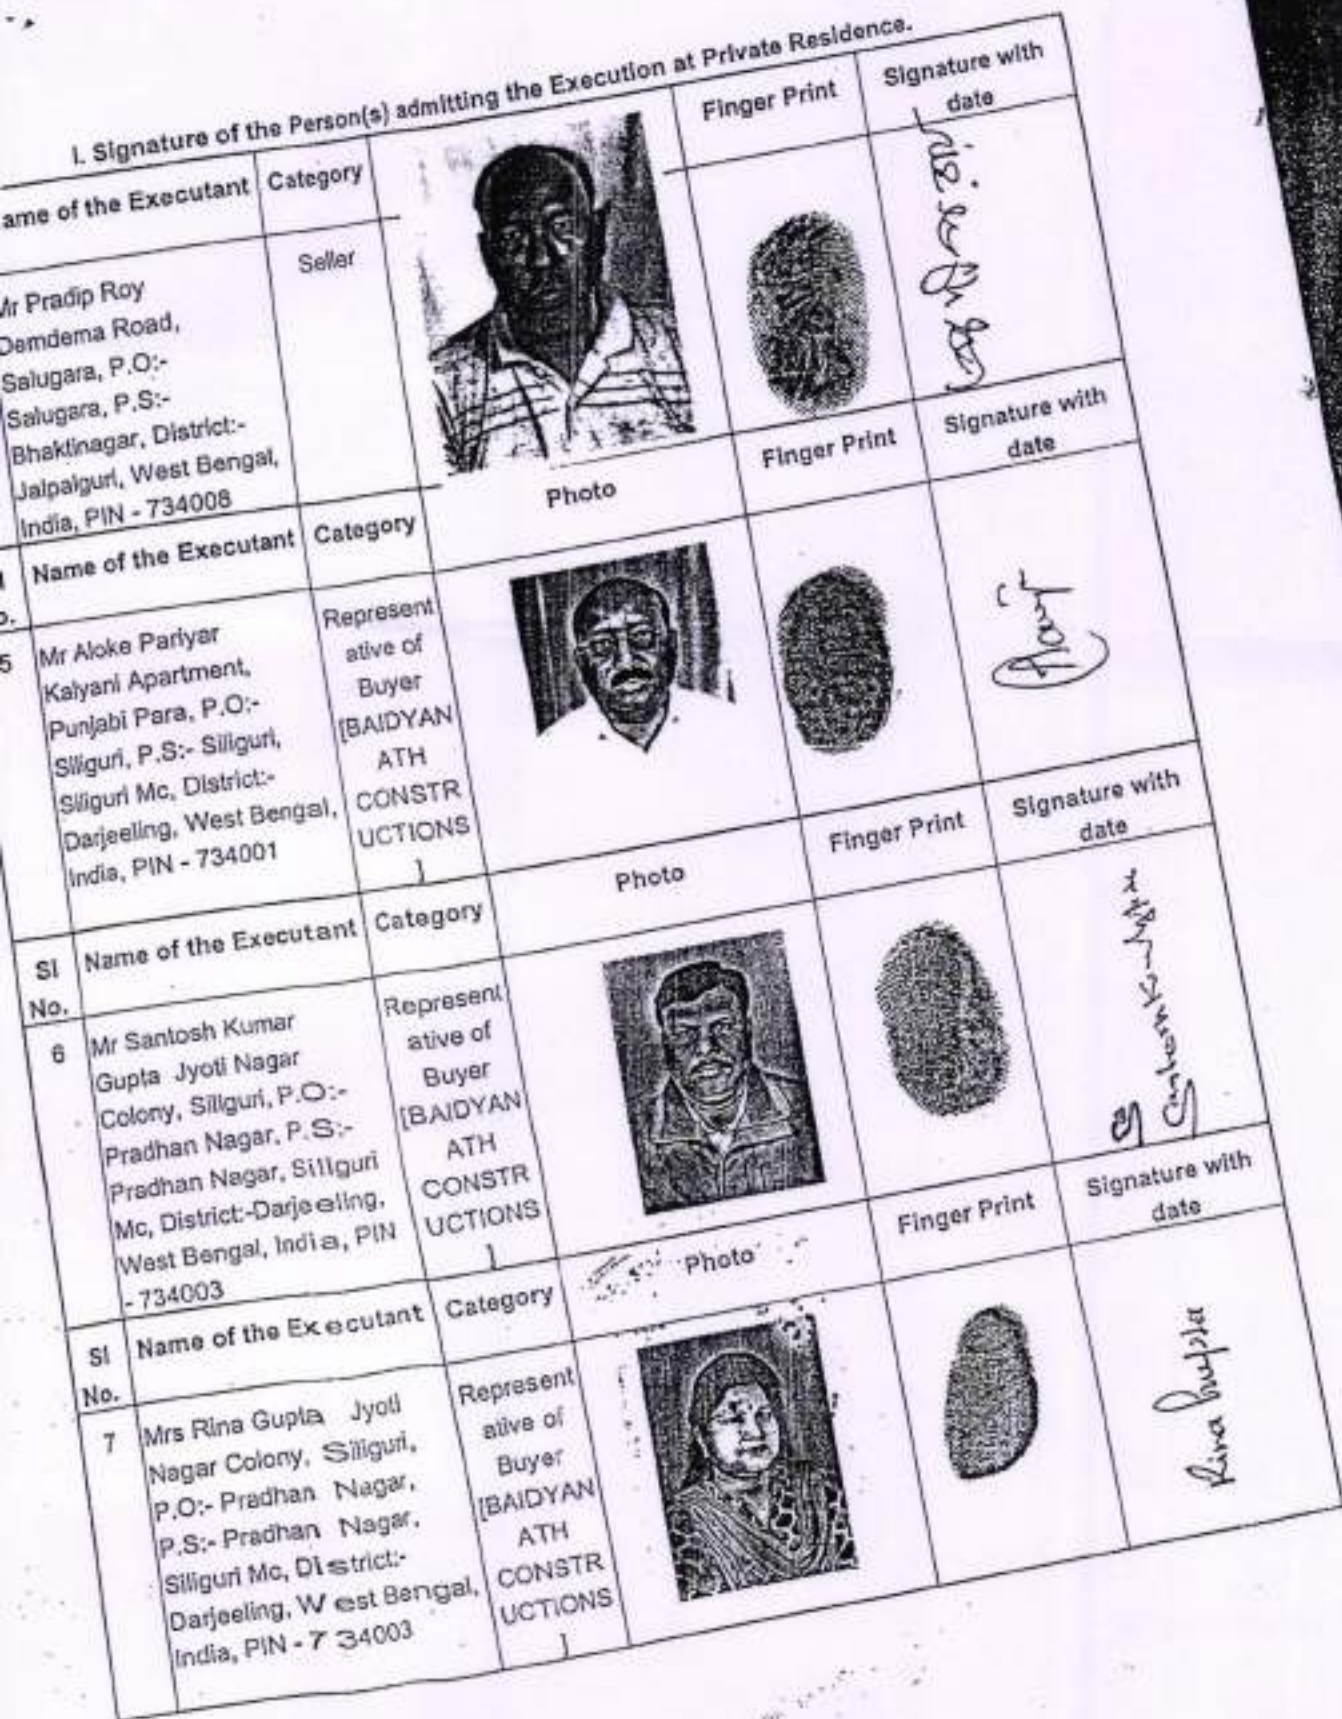 I. Signature of the Person(s) admitting the Execution at Private Residence.
ame of the Executant
Category
Finger Print
Signature with
date
Mr Pradip Roy
Demdema Road,
Salugara, P.O:-
Salugara, P.S:-
Bhaktinagar, District:-
Jalpaiguri, West Bengal,
India, PIN - 734008
Seller
Name of the Executant
Category
Photo
Finger Print
Signature with
date
5
Mr Aloke Pariyar
Kalyani Apartment,
Punjabi Para, P.O:-
Siliguri, P.S:- Siliguri,
Siliguri Mc, District:-
Darjeeling, West Bengal,
India, PIN - 734001
Represent
ative of
Buyer
[BAIDYAN
ATH
CONSTR
UCTIONS
]
Sl
No.
Name of the Executant
Category
Photo
Finger Print
Signature with
date
6
Mr Santosh Kumar
Gupta Jyoti Nagar
Colony, Siliguri, P.O:-
Pradhan Nagar, P.S:-
Pradhan Nagar, Siliguri
Mc, District:-Darjeeling,
West Bengal, India, PIN
- 734003
Represent
ative of
Buyer
[BAIDYAN
ATH
CONSTR
UCTIONS
]
Sl
No.
Name of the Executant
Category
Photo
Finger Print
Signature with
date
7
Mrs Rina Gupta Jyoti
Nagar Colony, Siliguri,
P.O:- Pradhan Nagar,
P.S:- Pradhan Nagar,
Siliguri Mc, District:-
Darjeeling, West Bengal,
India, PIN - 734003
Represent
ative of
Buyer
[BAIDYAN
ATH
CONSTR
UCTIONS
]
Rina Gupta